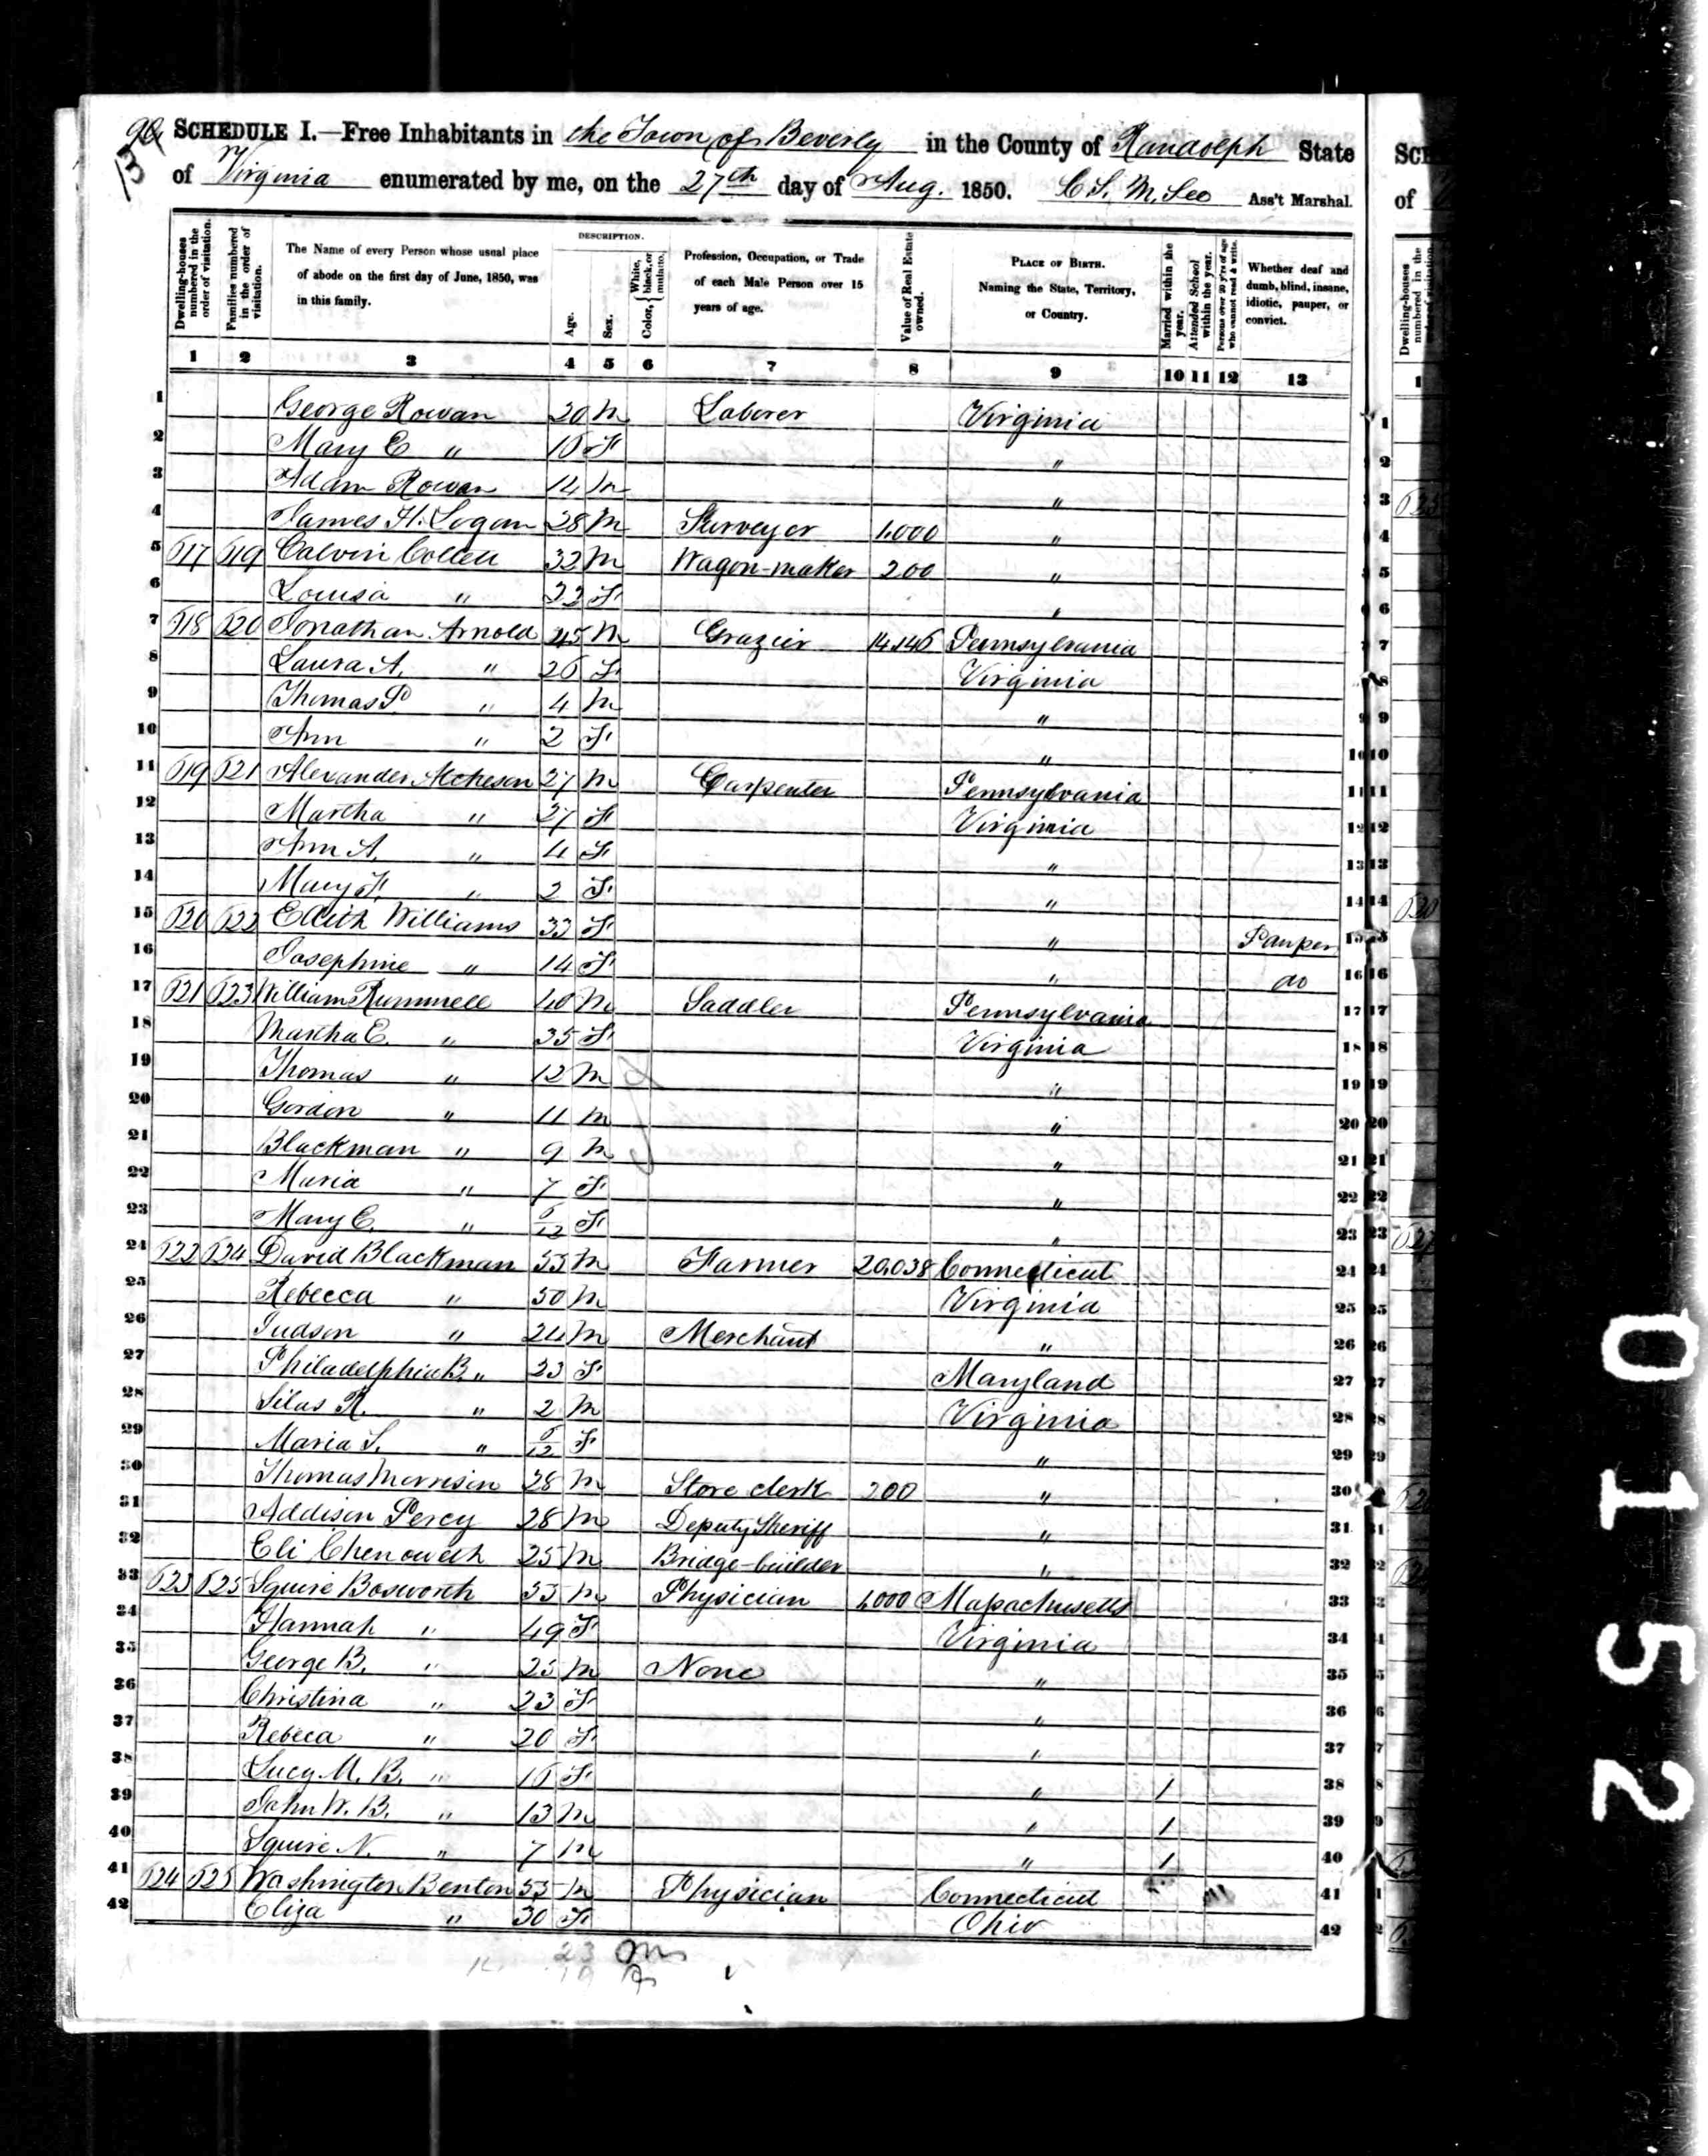 SCHEDULE I.—Free Inhabitants in the Town of Beverly in the County of Randolph State
of Virginia enumerated by me, on the 27th day of Aug. 1850. Ass't Marshal.
Dwelling-houses numbered in the order of visitation.
Families numbered in the order of visitation.
The Name of every Person whose usual place of abode on the first day of June, 1850, was in this family.
DESCRIPTION.
Age.
Sex.
Color, White, black, or mulatto.
Profession, Occupation, or Trade of each Male Person over 15 years of age.
Value of Real Estate owned.
PLACE OF BIRTH. Naming the State, Territory, or Country.
Married within the year.
Attended School within the year.
Persons over 20 y'rs of age who cannot read & write.
Whether deaf and dumb, blind, insane, idiotic, pauper, or convict.
1 2 3 4 5 6 7 8 9 10 11 12 13
1 George Rowan 20 M Laborer Virginia 1
2 Mary E " F " 2
3 Adam Rowan 14 M " 3
4 James H. Logan 28 M Surveyor 1,000 " 4
5 617 619 Calvin 32 M Wagon-maker 200 " 5
6 Louisa " 22 F " 6
7 618 620 Jonathan Arnold 45 M Grazier 14,146 Pennsylvania 7
8 Laura A. " 26 F Virginia 8
9 Thomas " 4 M " 9
10 Ann " 2 F " 10
11 619 621 Alexander Acheson 27 M Carpenter Pennsylvania 11
12 Martha " 27 F Virginia 12
13 Ann A. " 4 F " 13
14 Mary F. " 2 F " 14
15 620 622 Edith Williams 33 F " Pauper 15
16 Josephine " 14 F " do 16
17 621 623 William Rummell 40 M Saddler Pennsylvania 17
18 Martha E. " 35 F Virginia 18
19 Thomas " 12 M " 19
20 Gordon " 11 M " 20
21 Blackman " 9 M " 21
22 Maria " 7 F " 22
23 Mary C. " 6/12 F " 23
24 622 624 David Blackman 53 M Farmer 20,038 Connecticut 24
25 Rebecca " 50 M Virginia 25
26 Judson " 24 M Merchant " 26
27 Philadelphia B. " 23 F Maryland 27
28 Silas R. " 2 M Virginia 28
29 Maria S. " 6/12 F " 29
30 Thomas Morrison 28 M Store clerk 200 " 30
31 Addison Percy 28 M Deputy Sheriff " 31
32 Eli Chenoweth 25 M Bridge-builder " 32
33 623 625 Squire Bosworth 55 M Physician 1,000 Massachusetts 33
34 Hannah " 49 F Virginia 34
35 George B. " 25 M None " 35
36 Christina " 23 F " 36
37 Rebeca " 20 F " 37
38 Lucy M. B. " 16 F " 1 38
39 John W. B. " 13 M " 1 39
40 Squire N. " 7 M " 1 40
41 624 625 Washington Benton 53 M Physician Connecticut 41
42 Eliza " 30 F Ohio 42
23 m
19
0152